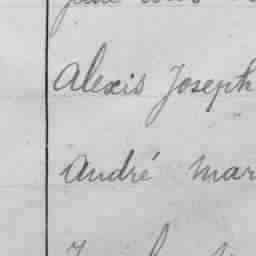 Alexis Joseph
André Mar